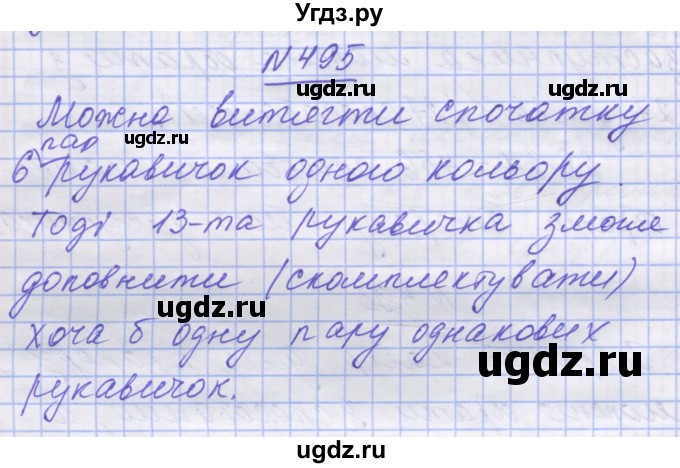 Угдз.ру
№495
Можна витягти спочатку
6 пар рукавичок одного кольору.
Тоді 13-та рукавичка зможе
доповнити (скомплектувати)
хоча б одну пару однакових
рукавичок.
ugdz.ru
ugdz.ru
ugdz.ru
ugdz.ru
ugdz.ru
ugdz.ru
ugdz.ru
ugdz.ru
ugdz.ru